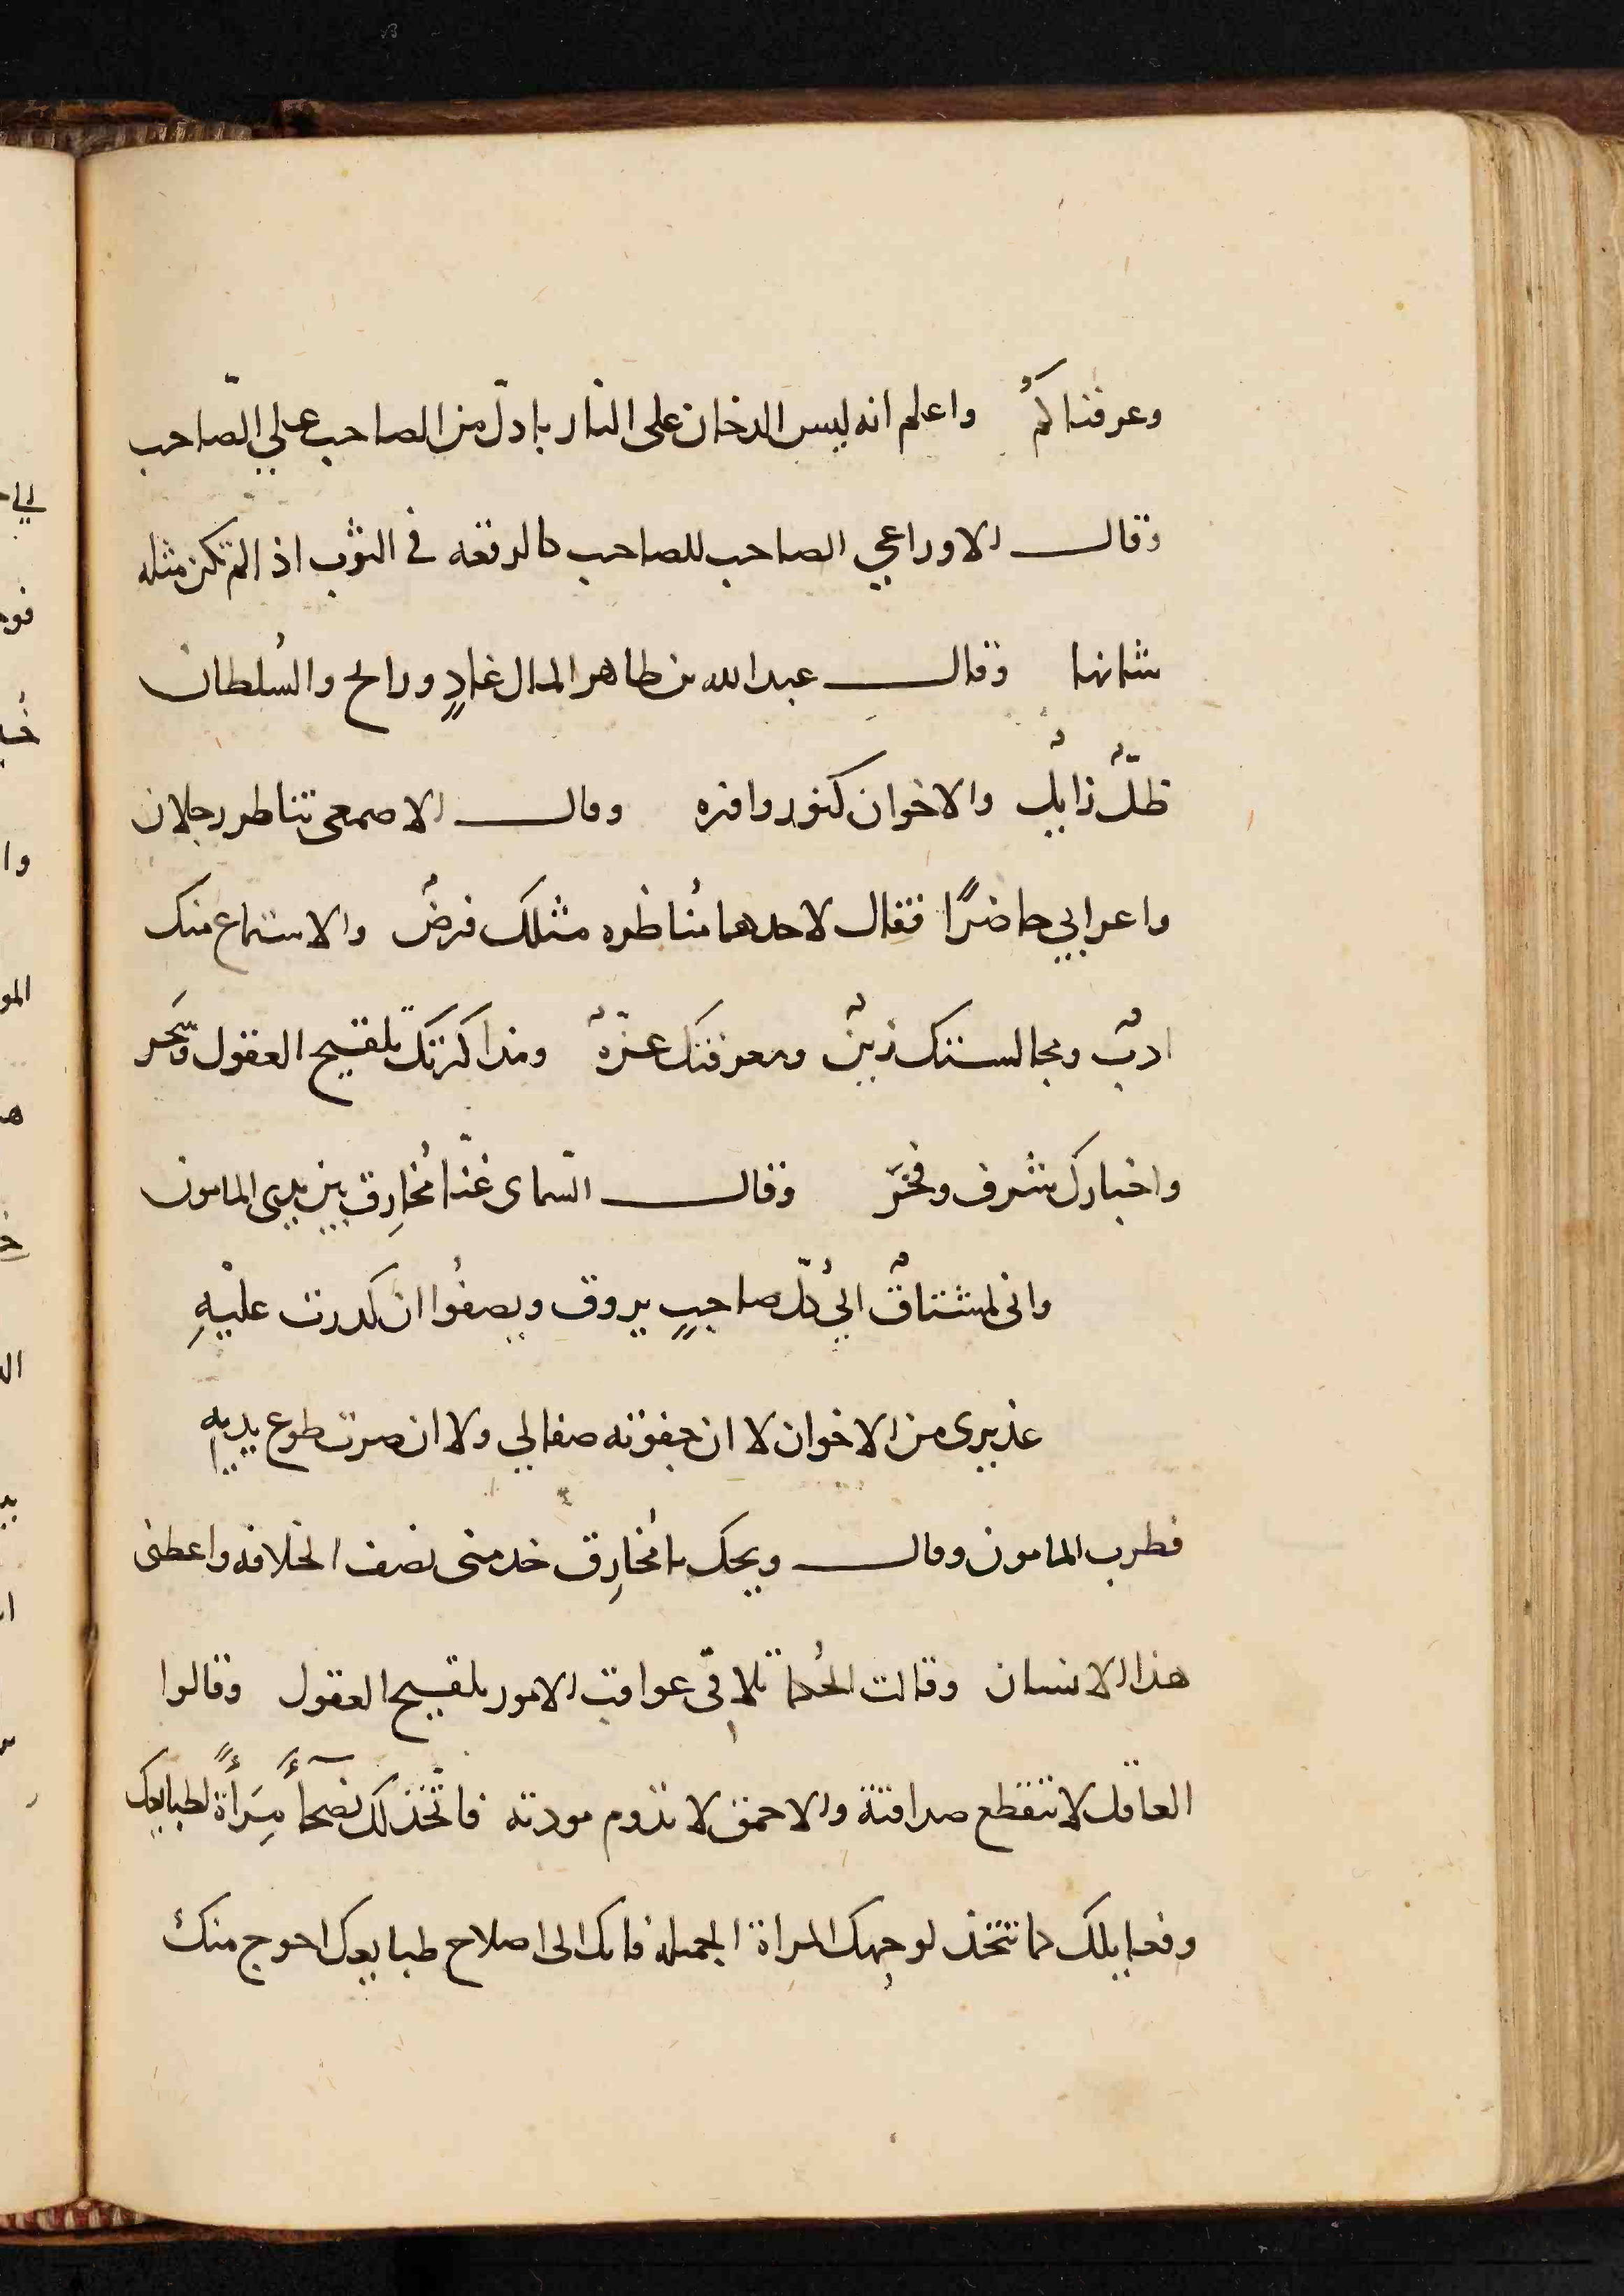 وعرفناكُم واعلم انه ليس الدخان على النار بادلّ من الصاحب على الصّاحب
وقال الاوزاعي الصاحب للصاحب كالرقعه في الثوب اذ الم تكن مثله
شانها وقال عبد الله بن طاهر المال غادٍ ورايح والسُلطان
ظلٌّ زايلٌ والاخوان كنوز وافره وقال الاصمعي تناظر رجلان
واعرابي حاضرًا فقال لاحدهما مُناظره مثلك فرضٌ والاستماع منك
ادبٌ ومجالستك زينٌ ومعرفتك عزّهٌ ومذاكرتك تلقيح العقول
واخبارك شرف وفخرٌ وقال غنّا مُخارِق بين يدي المامون
واني لمشتاقٌ الي كلّ صاحبٍ يروق ويصفُوا ان كدرت عليْهِ
عذيري من الاخوان لا ان جفوته صفا لي ولا ان صرت طوع يديه
فطرب المامون وقال ويحك يا مُخارِق خد مني نصف الخلافه واعطني
هذا الانسان وقالت الحُكما عواقب الامور تلقيح العقول وقالوا
العاقل لا تنقطع صداقته والاحمق لا تدوم مودته فاتّخذ لك نصحآءً مِرَأةً لطبايعك
وفعايلك كما تتخذ لوجهك المراة الجميله فانك الى اصلاح طبايعك احوج منك